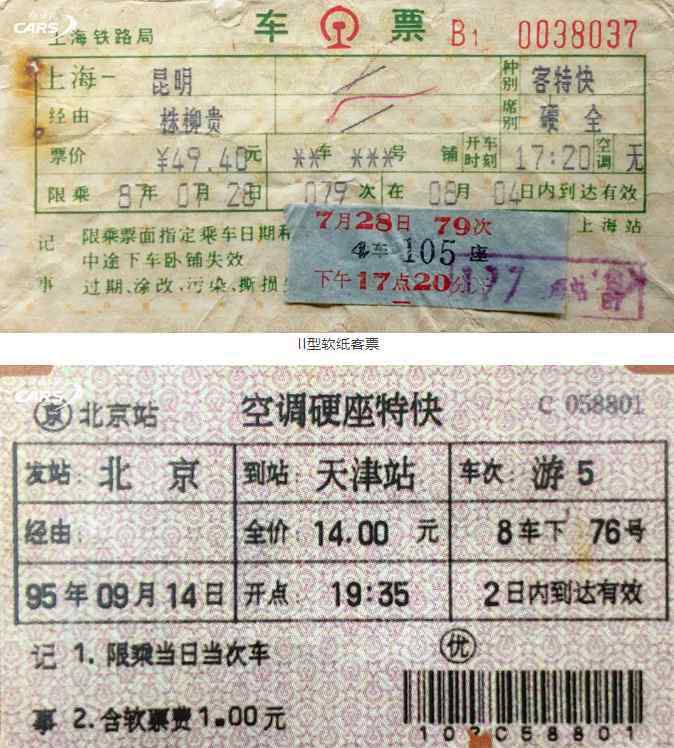 CARS
上海铁路局 车 票 B1 0038037
上海— 昆明 种别 客特快
经由 株柳贵 席别 硬 全
票价 ¥49.40元 **车 ***号 铺 开车时刻 17:20 空调 无
限乘 87年 07月 28日 079次 在 08月 04日内到达有效
7月28日 79次 上海站
记 限乘票面指定乘车日期
客车 105 座
中途下车卧铺失效
下午17点20分
事 过期、涂改、污染、撕损
II型软纸客票
CARS
京 北京站 空调硬座特快 C 058801
发站: 北 京 到站: 天津站 车次: 游 5
经由: 全价: 14.00 元 8车下 76号
95年09月14日 开点: 19:35 2日内到达有效
记 1. 限乘当日当次车 优
事 2. 含软票费1.00元